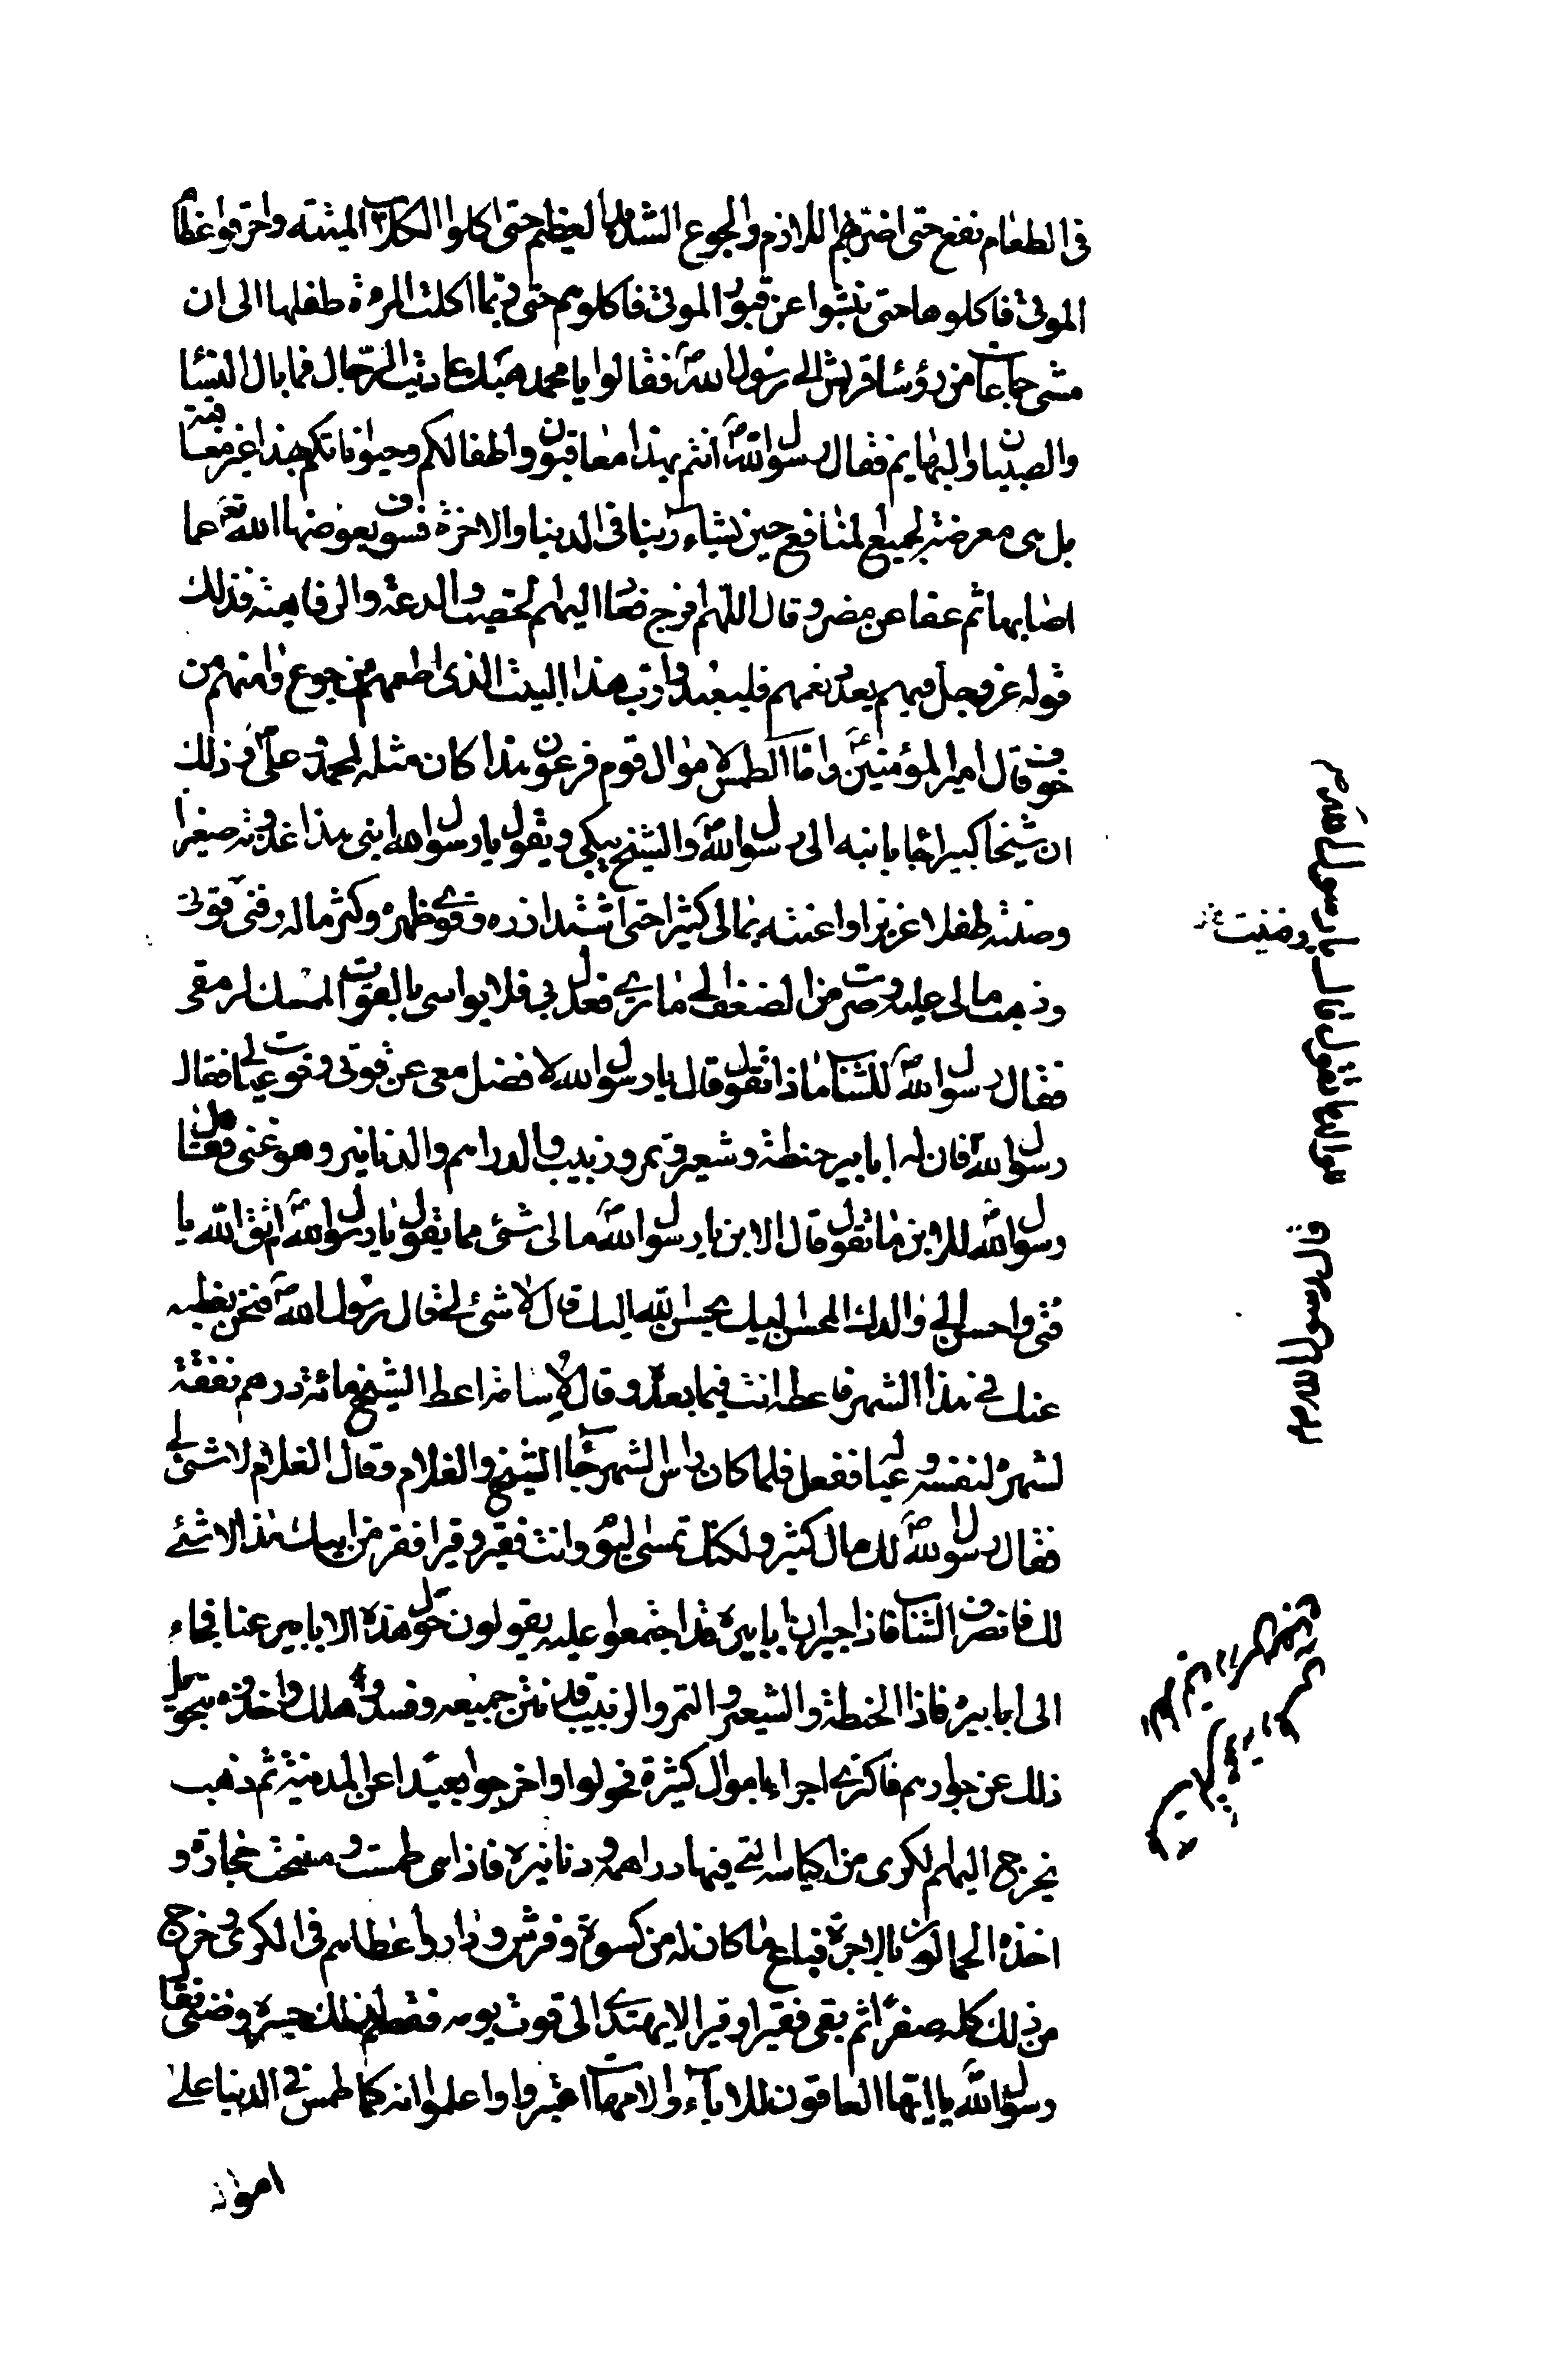 فى الطعام نفع حتى اضر بهم اللازم والجوع الشديد العظيم حتى اكلوا الكلاب الميتة واحرقوا عظام
الموتى فاكلوها حتى نبشوا عن قبور الموتى فاكلوهم حتى ربما اكلت المرءة طفلها الى ان
مشى جماعات من رؤسا قريش الى رسول الله ص فقالوا يا محمد هبك عاديت الرجال فما بال النسا
والصبيان والبهايم فقال رسول الله ص انتم بهذا معاقبون واطفالكم وحيواناتكم بهذا غير معاقبة
بل هى معرضة لجميع المنافع حين يشاء ربنا فى الدنيا والاخرة فسوف يعوضها الله تع عما
اصابها ثم عفا عن مضر وقال اللهم افرج عنهم فعاد اليهم الخصب والدعة والرفاهية فذلك
قوله عز وجل فيهم يعدد نعمهم فليعبدوا رب هذا البيت الذى اطعمهم من جوع وامنهم من
خوف قال امير المؤمنين ع واما الطمس لاموال قوم فرعون فقد كان مثله لمحمد وعلى ع وذلك
ان شيخا كبيرا جا بابنه الى رسول الله ص والشيخ يبكى ويقول يا رسول الله ابنى هذا غذوته صغيرا
وصنته طفلا عزيزا واعنته بمالى كثيرا حتى اشتد ازره وقوى ظهره وكثر ماله وفنى قوتى
وذهب مالى عليه وصرت من الضعف الى ما ترى فعل بى فلا يواسى بالقوت الممسك لرمقى
فقال رسول الله ص للشاب ماذا تقول قال يا رسول الله لا فضل معى عن قوتى وقوت عيالى فقال
رسول الله ص فان له انابير حنطة وشعير وتمر وزبيب والدراهم والدنانير وهو غنى فقال
رسول الله ص للابن ما تقول قال الابن يا رسول الله ص ما لى شئ مما يقول يا رسول الله اتق الله يا
فتى واحسن الى والدك المحسن اليك يحسن الله اليك قال لا شئ لى قال رسول الله ص فنحن نعطيه
عنك فى هذا الشهر فاعطه انت فيما بعد وقال لاسامة اعط الشيخ مائة درهم نفقة
لشهره لنفسه وعياله ففعل فلما كان راس الشهر جا الشيخ والغلام وقال الغلام لا شئ لى
فقال رسول الله ص لك مال كثير ولكنك تمسى اليوم وانت فقير وقير افقر من ابيك هذا لا شئ
لك فانصرف الشاب فاذا جيران انابيره قد اجتمعوا عليه يقولون حول هذه الانابير عنا فجاء
الى انابيره فاذا الحنطة والشعير والتمر والزبيب قد نتن جميعه وفسد وهلك واخذوه بتحويل
ذلك عن جوارهم فاكترى اجراء باموال كثيرة فحولوا واخرجوا بعيدا عن المدينة ثم ذهب
يخرج اليهم الكرى من اكياسه التى فيها دراهمه ودنانيره فاذا هى طمست ومسخت حجارة و
اخذه الحمالون بالاجرة فباع ما كان له من كسوة وفرش ودار واعطاهم فى الكرى وخرج
من ذلك كله صفرا ثم بقى فقيرا وقيرا لا يهتدى الى قوت يومه فسقم لذلك جسده وضنى فقال
رسول الله يا ايها العاقون للاباء والامهات اعتبروا واعلموا انه كما طمس فى الدنيا على
امواله
وضنيت